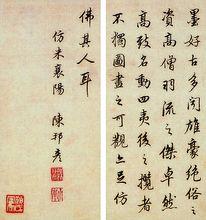 墨好古多聞雄豪絕俗之
資高僧羽流之傑卓然
高致名動四夷後之攬者
不獨圖畫之可觀亦足仿
佛其人耳
仿米襄陽 陳邦彥